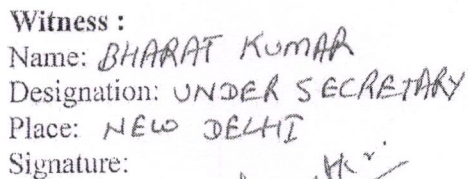 Witness :
Name: BHARAT KUMAR
Designation: UNDER SECRETARY
Place: NEW DELHI
Signature: